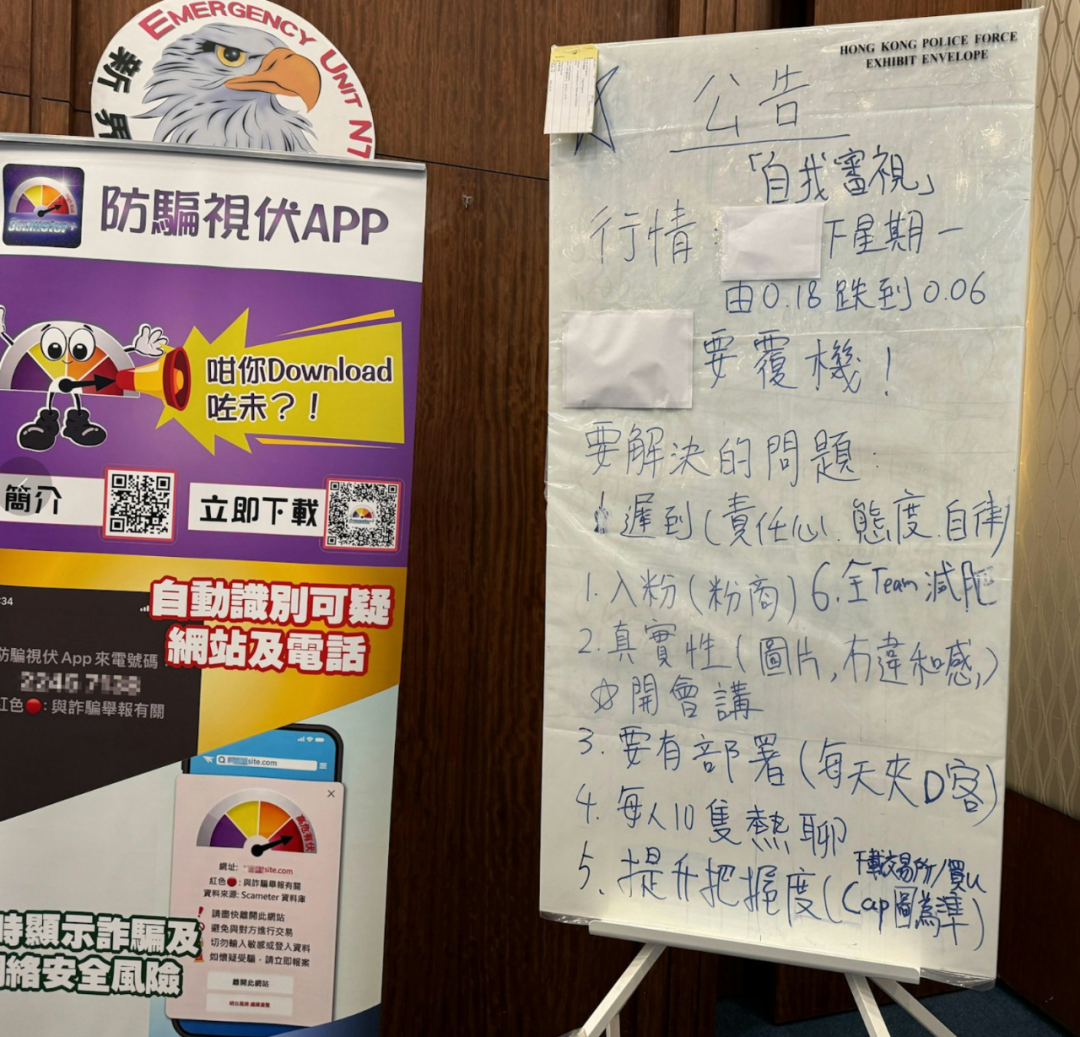 EMERGENCY UNIT NT
新界
防騙視伏APP
咁你Download
咗未？！
簡介
立即下載
自動識別可疑
網站及電話
:34
防騙視伏App來電號碼：
紅色🔴: 與詐騙舉報有關
site.com
網址:
site.com
紅色🔴: 與詐騙舉報有關
資料來源: Scameter 資料庫
請盡快離開此網站
避免與對方進行交易
切勿輸入敏感或登入資料
如懷疑受騙，請立即報案
離開此網站
時顯示詐騙及
網絡安全風險
HONG KONG POLICE FORCE
EXHIBIT ENVELOPE
公告
「自我審視」
行情：
下星期一
由0.18跌到0.06
要覆機！
要解決的問題：
遲到(責任心．態度．自律)
1. 入粉(粉商) 6. 全Team減肥
2. 真實性(圖片,冇違和感,)
☆開會講
3. 要有部署(每天夾D客)
4. 每人10隻熱聊
5. 提升把握度(Cap圖為準)
下載交易所/買U